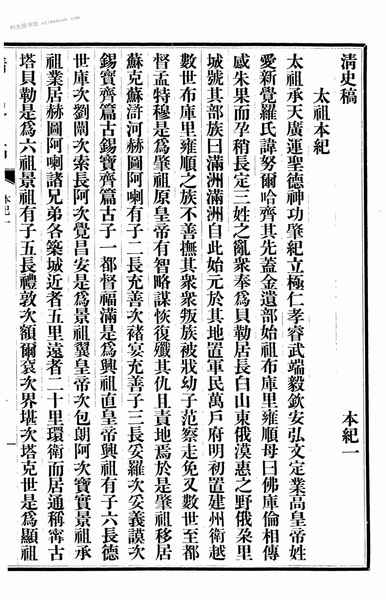 清史稿
本紀一
太祖本紀
太祖承天廣運聖德神功肇紀立極仁孝睿武端毅欽安弘文定業高皇帝姓
愛新覺羅氏諱努爾哈齊其先蓋金遺部始祖布庫里雍順母曰佛庫倫相傳
感朱果而孕稍長定三姓之亂衆奉爲貝勒居長白山東俄漠惠之野俄朶里
城號其部族曰滿洲滿洲自此始元於其地置軍民萬戶府明初置建州衛越
數世布庫里雍順之族不善撫其衆衆叛族被戕幼子范察走免又數世至都
督孟特穆是爲肇祖原皇帝有智略謀恢復殲其仇且責地焉於是肇祖移居
蘇克蘇滸河赫圖阿喇有子二長充善次褚宴充善子三長妥羅次妥義謨次
錫寶齊篇古錫寶齊篇古子一都督福滿是爲興祖直皇帝興祖有子六長德
世庫次劉闡次索長阿次覺昌安是爲景祖翼皇帝次包朗阿次寶實景祖承
祖業居赫圖阿喇諸兄弟各築城近者五里遠者二十里環衛而居通稱寗古
塔貝勒是爲六祖景祖有子五長禮敦次額爾袞次界堪次塔克世是爲顯祖
本紀一